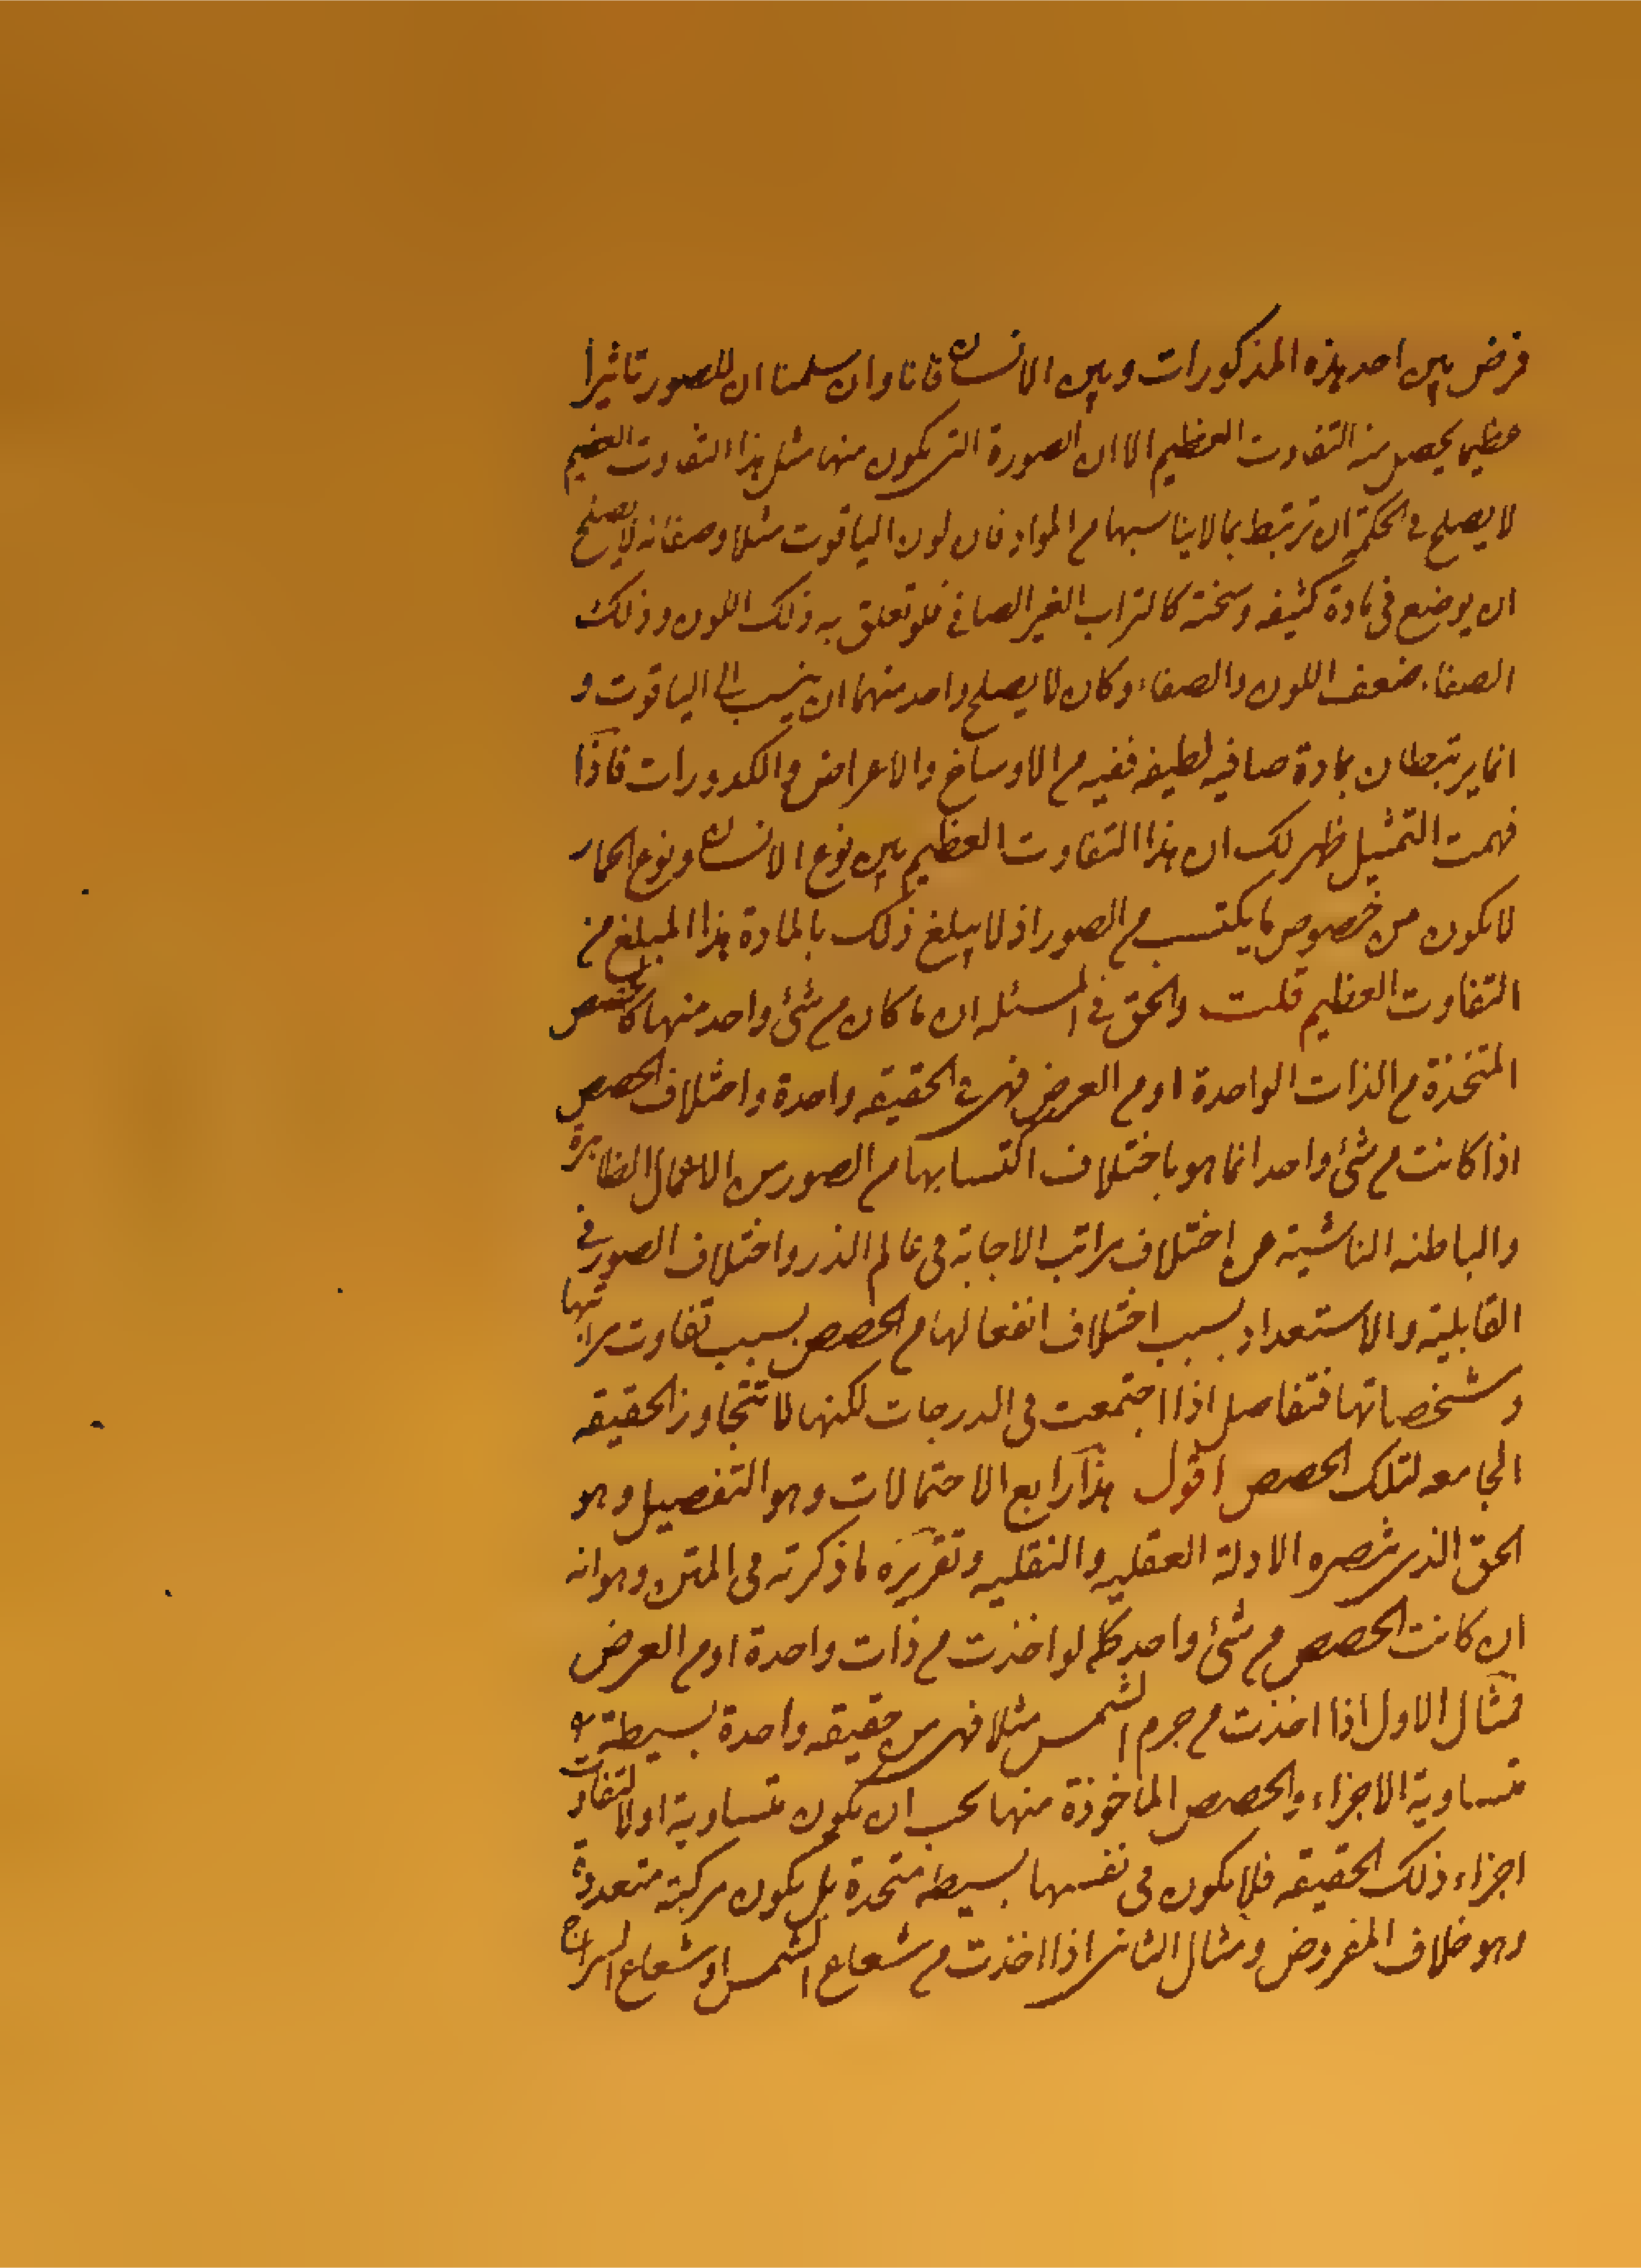 فرض بين احد هذه المذكورات وبين الانسان فانا وان سلمنا ان للصور تاثيرا
عظيما يحصل منه التفاوت العظيم الا ان الصورة التى يكون منها مثل هذا التفاوت العظيم
لا يصلح فى الحكمة ان ترتبط بما لا يناسبها من المواد فان لون الياقوت مثلا وصفائه لا يصلح
ان يوضع فى مادة كثيفه وسخة كالتراب الغير الصافى فلو تعلق به ذلك اللون وذلك
الصفاء ضعف اللون والصفاء وكان لا يصلح واحد منهما ان ينسب الى الياقوت و
انما يرتبطان بمادة صافيه لطيفه نقيه من الاوساخ والاعراض والكدورات فاذا
فهمت التمثيل ظهر لك ان هذا التفاوت العظيم بين نوع الانسان ونوع الحمار
لا يكون من خصوص ما يكتسب من الصور اذ لا يبلغ ذلك بالمادة هذا المبلغ من
التفاوت العظيم قلت والحق فى المسئله ان ما كان من شئ واحد منها كالحصص
المتخذة من الذات الواحدة او من العرض فهى فى الحقيقه واحدة واختلاف الحصص
اذا كانت من شئ واحد انما هو باختلاف اكتسابها من الصور من الاعمال الظاهرة
والباطنه الناشية من اختلاف مراتب الاجابة فى عالم الذر واختلاف الصور فى
القابلية والاستعداد بسبب اختلاف انفعالها من الحصص بسبب تفاوت مراتبها
ومشخصاتها فتفاصل اذا اجتمعت فى الدرجات لكنها لا تتجاوز الحقيقه
الجامعه لتلك الحصص اقول هذا رابع الاحتمالات وهو التفصيل وهو
الحق الذى تنصره الادلة العقليه والنقليه وتقريره ما ذكرته فى المتن وهو انه
ان كانت الحصص من شئ واحد كما لو اخذت من ذات واحدة او من العرض
فمثال الاول اذا اخذت من جرم الشمس مثلا فهى من حقيقه واحدة بسيطة
متساوية الاجزاء والحصص الماخوذة منها يجب ان يكون متساوية او لا لتفاوت
اجزاء ذلك الحقيقه فلا يكون فى نفسها بسيطه متحدة بل يكون مركبة متعددة
وهو خلاف المفروض ومثال الثانى اذا اخذت من شعاع الشمس او شعاع السراج